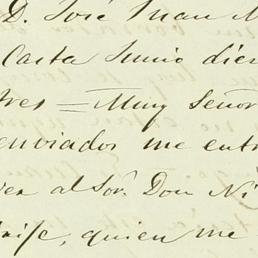 D. José Juan M
Carta Junio dies
tres = Muy Señor
enviados me entr
ver al Sor. Don Ni
rife, quien me